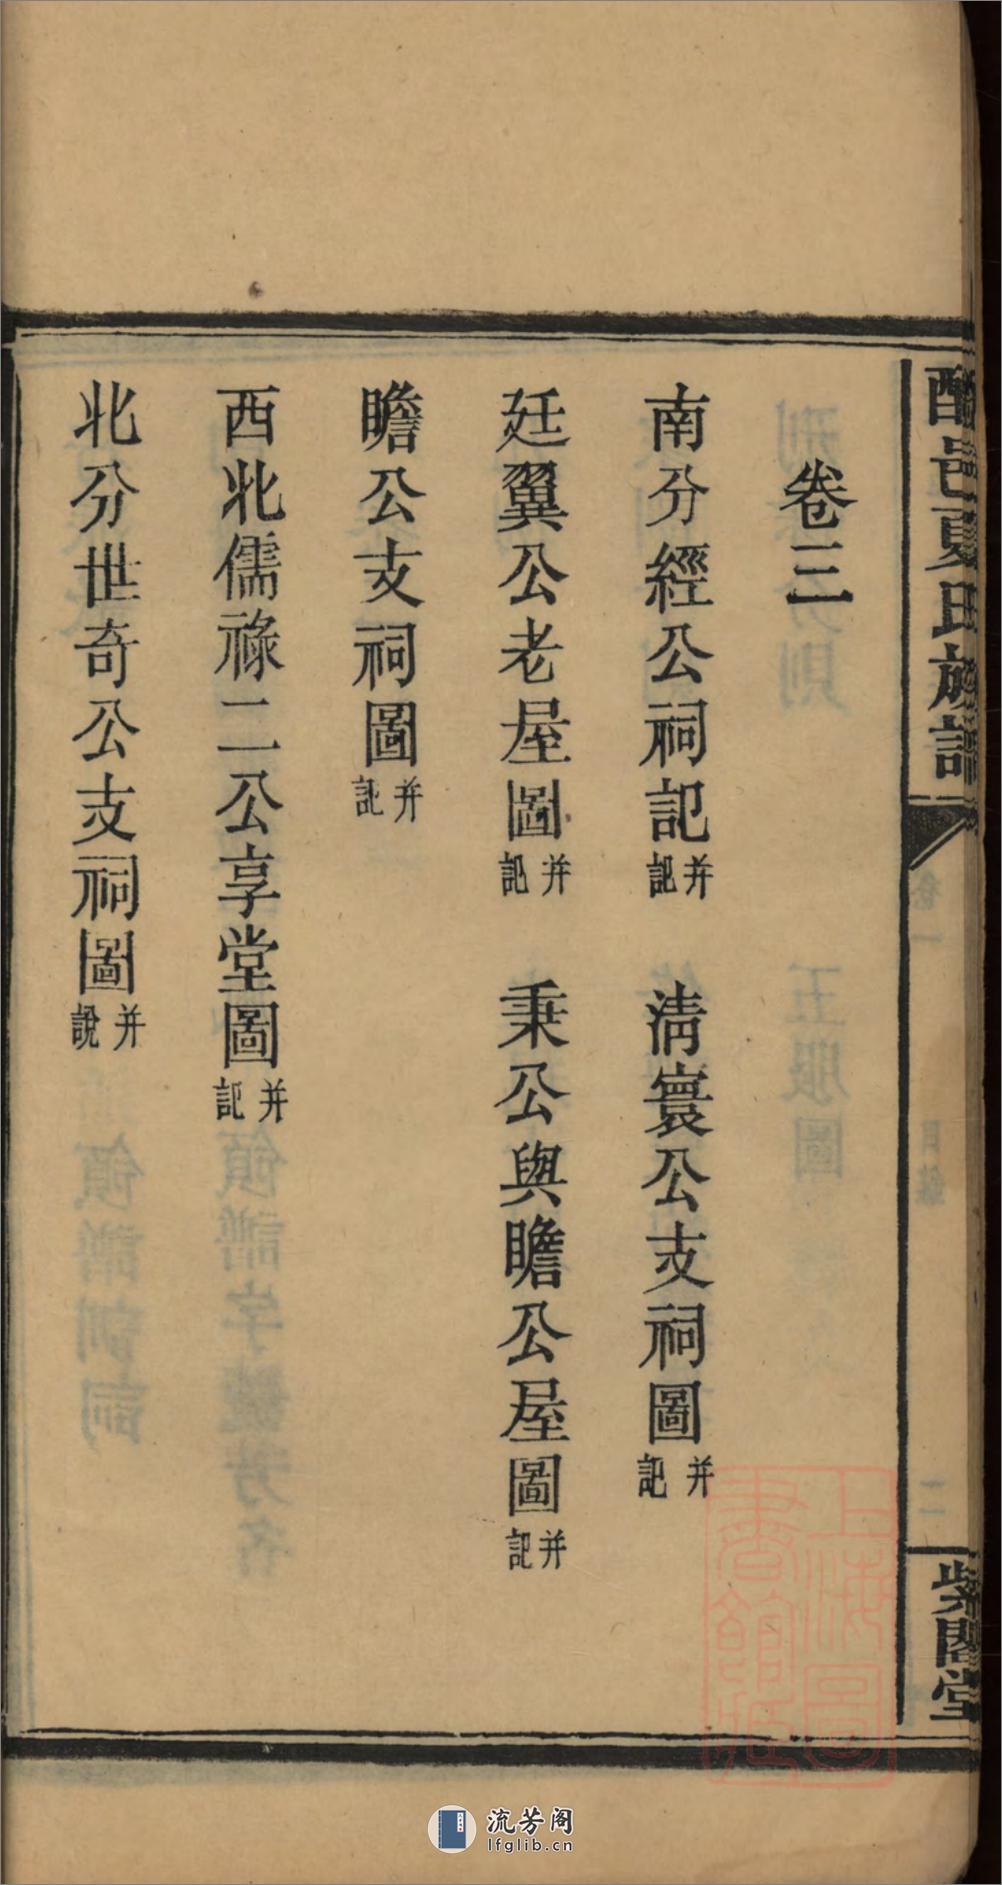 酃邑夏氏族譜
卷一
目錄
二
紫閣堂
卷三
南分經公祠記并記 清寰公支祠圖并記
廷翼公老屋圖并記 秉公與瞻公屋圖并記
瞻公支祠圖并記
西北儒祿二公享堂圖并記
北分世奇公支祠圖并說
上海圖書館藏
流芳阁
lfglib.cn